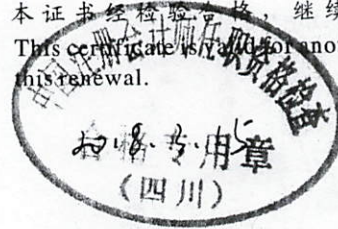 本证书经检验合格，继续
This certificate is valid for ano
this renewal.
中国注册会计师任职资格检查
合格专用章
（四川）